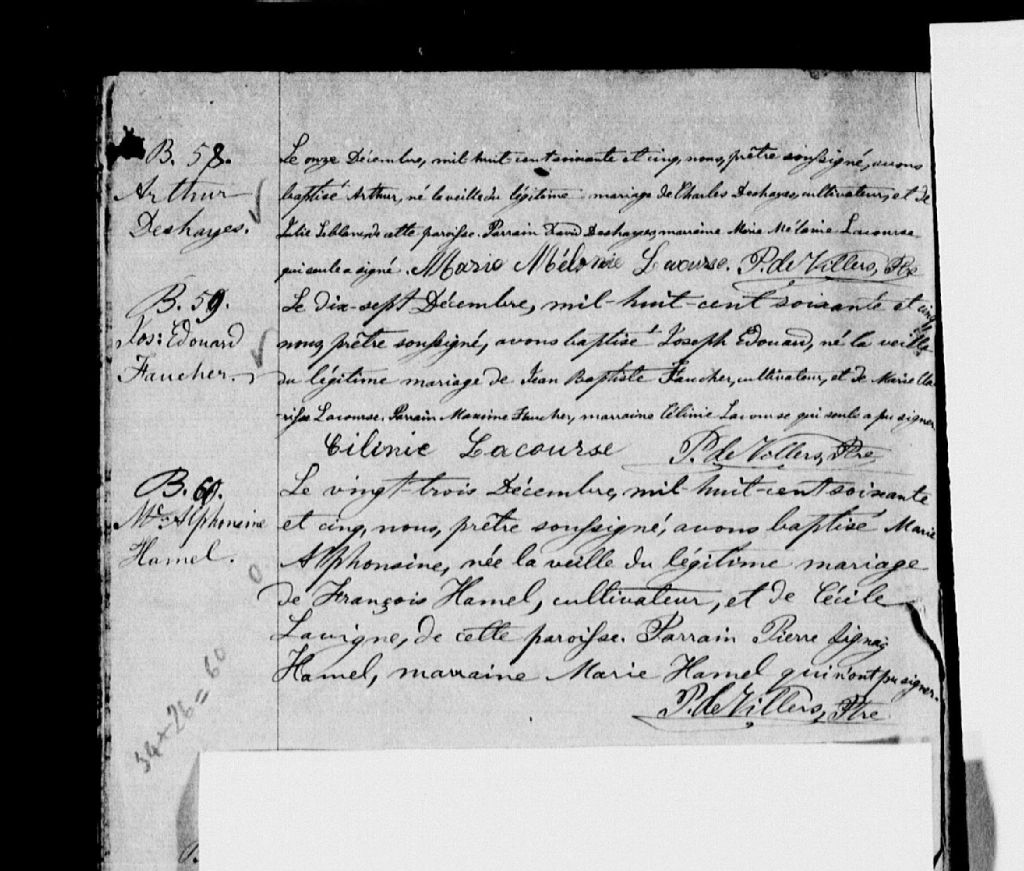 B. 58.
Arthur
Deshayes.
Le onze Décembre, mil huit cent soixante et cinq, nous, prêtre soussigné, avons
baptisé Arthur, né la veille du légitime mariage de Charles Deshayes, cultivateur, et de
Julie Leblanc, de cette paroisse. Parrain David Deshayes, marraine Marie Mélanie Lacourse
qui seule a signé. Marie Mélanie Lacourse. P. de Villers, Ptre
B. 59.
Jos: Edouard
Faucher.
Le dix-sept Décembre, mil-huit-cent soixante et cinq
nous, prêtre soussigné, avons baptisé Joseph Edouard, né la veille
du légitime mariage de Jean Baptiste Faucher, cultivateur, et de Marie Cla-
-risse Lacourse. Parrain Maxime Faucher, marraine Célinie Lacourse qui seule a pu signer
Célinie Lacourse P. de Villers, Ptre
B. 60.
Mie Alphonsine
Hamel.
Le vingt-trois Décembre, mil-huit-cent soixante
et cinq, nous, prêtre soussigné, avons baptisé Marie
Alphonsine, née la veille du légitime mariage
de François Hamel, cultivateur, et de Cécile
Lavigne, de cette paroisse. Parrain Pierre Signaÿ
Hamel, marraine Marie Hamel qui n'ont pu signer.
P. de Villers, Ptre
34 + 26 = 60